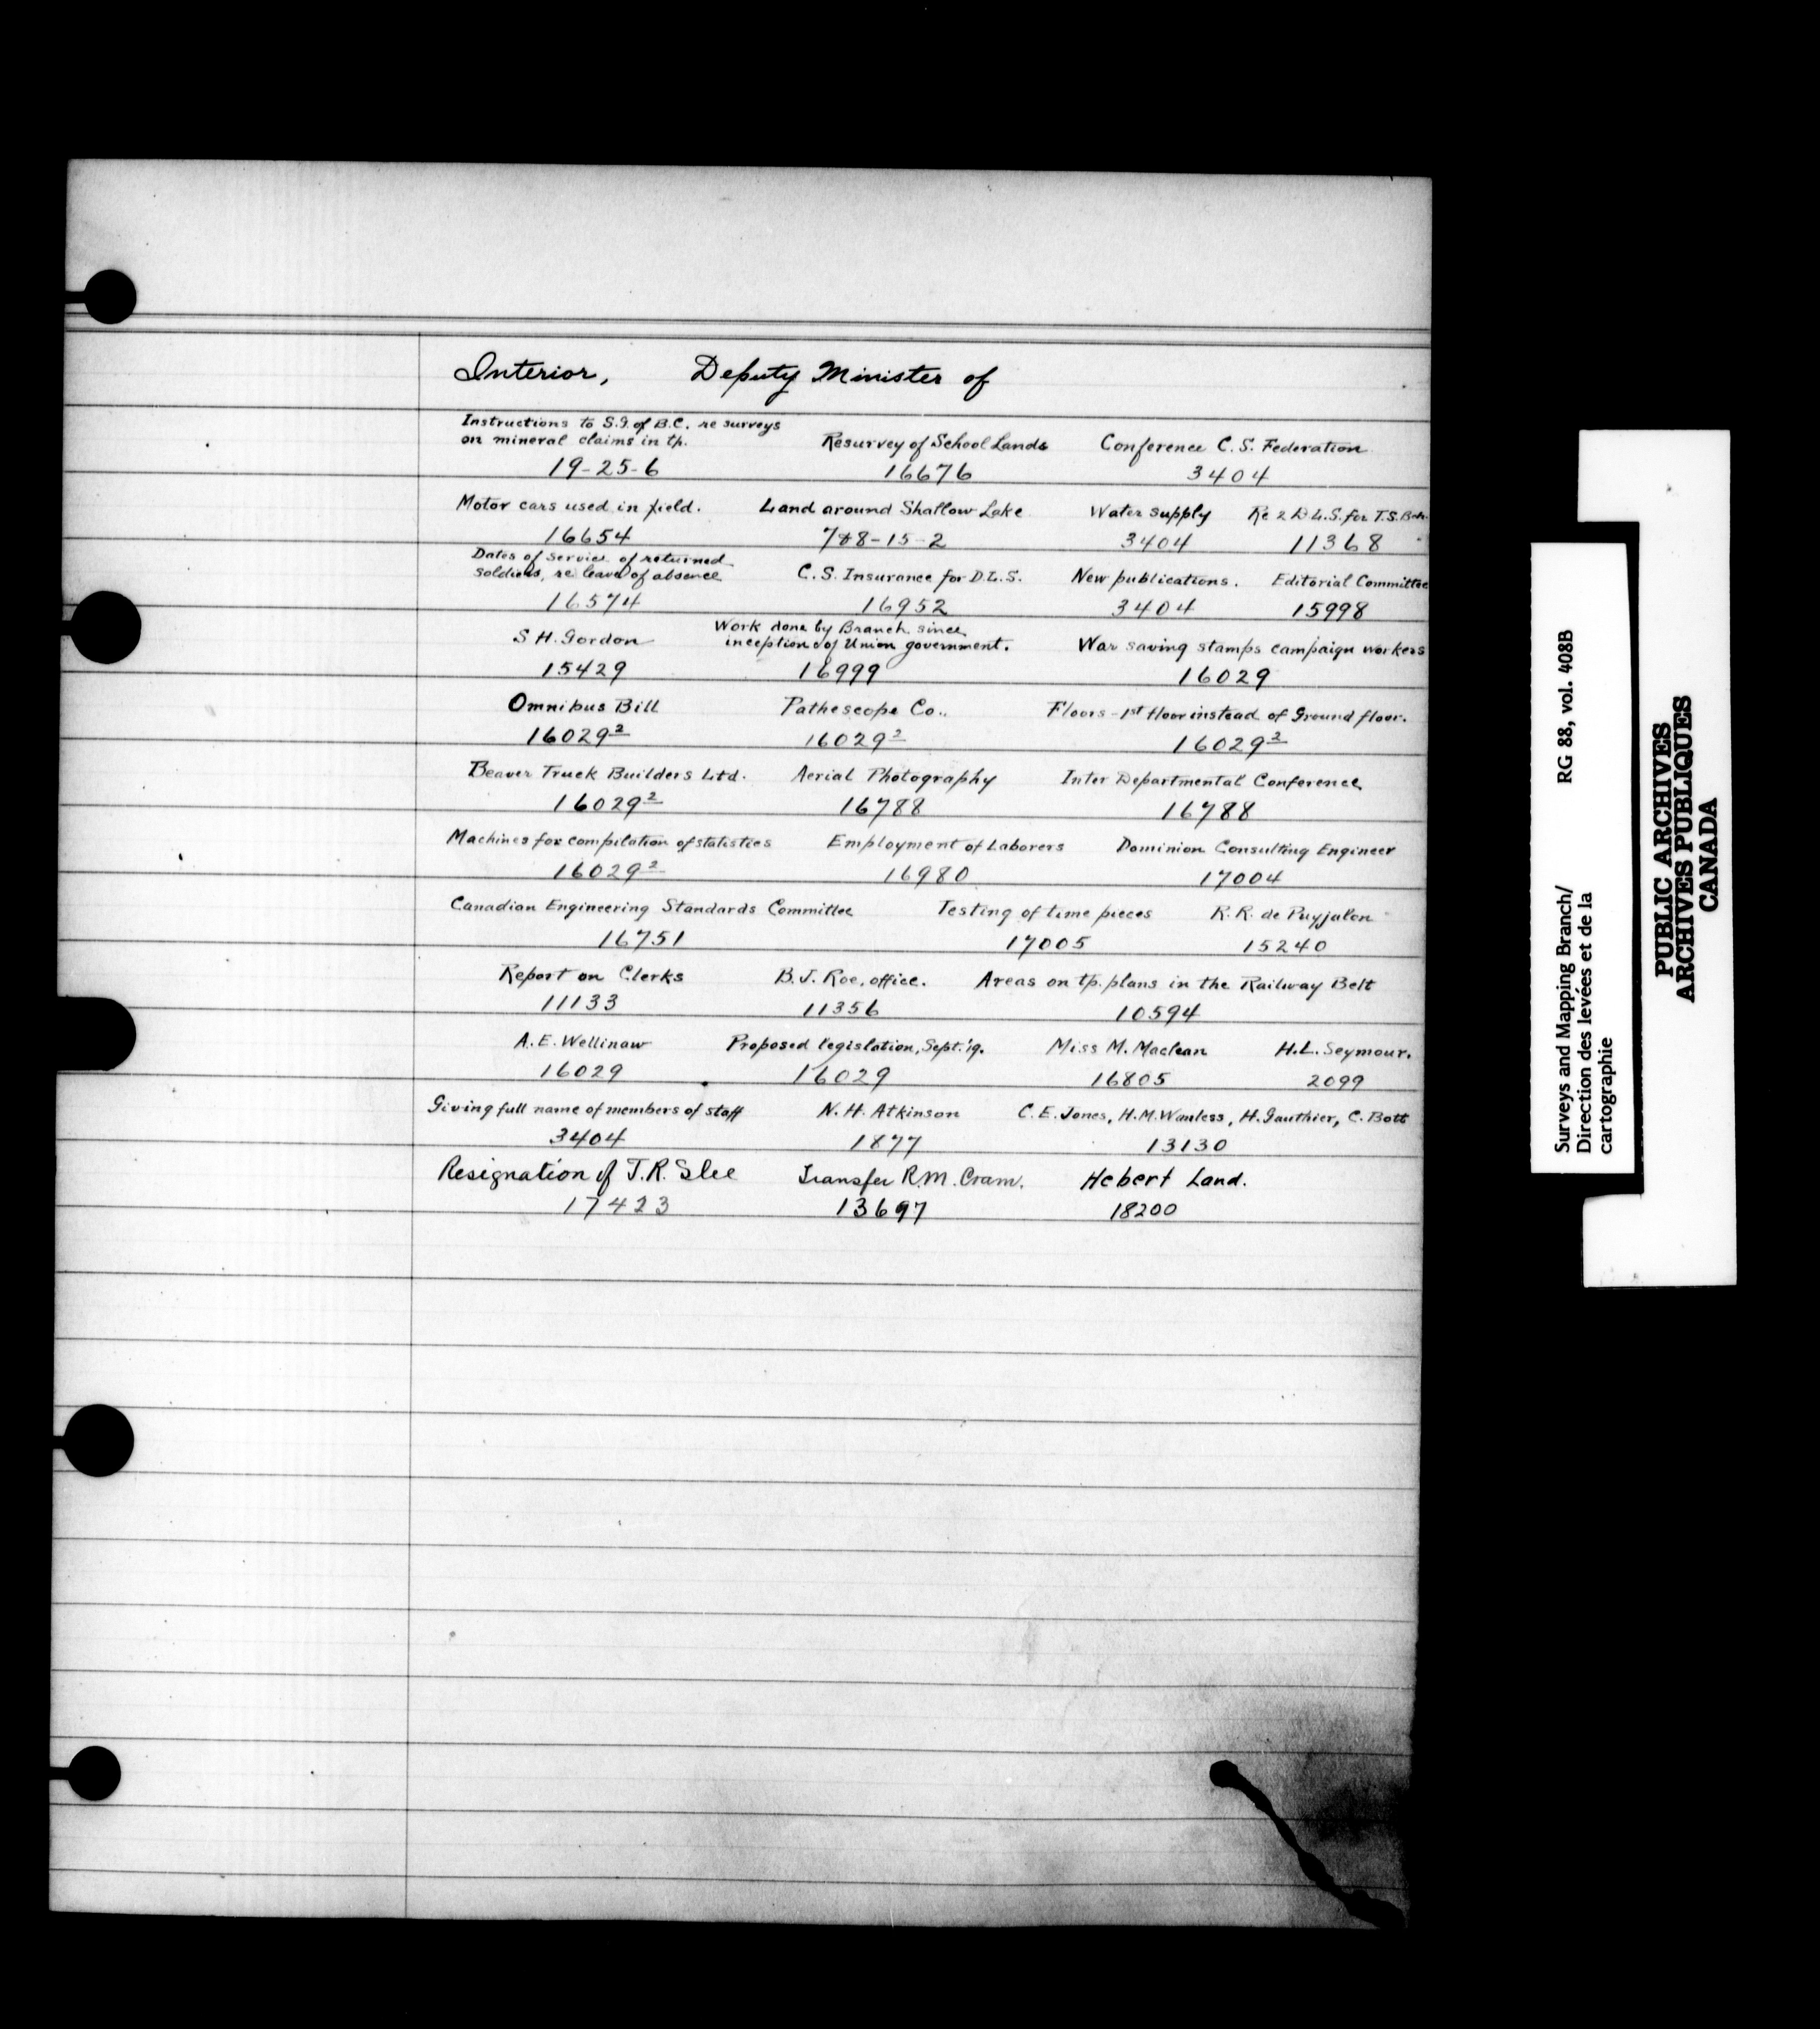 Interior, Deputy Minister of
Instructions to S.G. of B.C. re surveys
on mineral claims in tp. Resurvey of School Lands Conference C. S. Federation
19-25-6 16676 3404
Motor cars used in field. Land around Shallow Lake Water supply Re 2 D.L.S. for T.S. Bch.
16654 788-15-2 3404 11368
Dates of service of returned
soldiers, re leave of absence C.S. Insurance for D.L.S. New publications. Editorial Committee
16574 16952 3404 15998
S H. Gordon Work done by Branch since
inception of Union government. War saving stamps campaign workers
15429 16999 16029
Omnibus Bill Pathescope Co.. Floors - 1st floor instead of Ground floor.
16029² 16029² 16029²
Beaver Truck Builders Ltd. Aerial Photography Inter Departmental Conference
16029² 16788 16788
Machines for compilation of statistics Employment of Laborers Dominion Consulting Engineer
16029² 16980 17004
Canadian Engineering Standards Committee Testing of time pieces R. R. de Puyjalon
16751 17005 15240
Report on Clerks B. J. Roe, office. Areas on tp. plans in the Railway Belt
11133 11356 10594
A. E. Wellinaw Proposed legislation, Sept. '19. Miss M. Maclean H.L. Seymour.
16029 16029 16805 2099
Giving full name of members of staff N. H. Atkinson C. E. Jones, H.M. Wanless, H. Gauthier, C. Bott
3404 1877 13130
Resignation of T.R. Slee Transfer R.M. Cram. Hebert Land.
17423 13697 18200
Surveys and Mapping Branch/ RG 88, vol. 408B
Direction des levées et de la
cartographie
PUBLIC ARCHIVES
ARCHIVES PUBLIQUES
CANADA